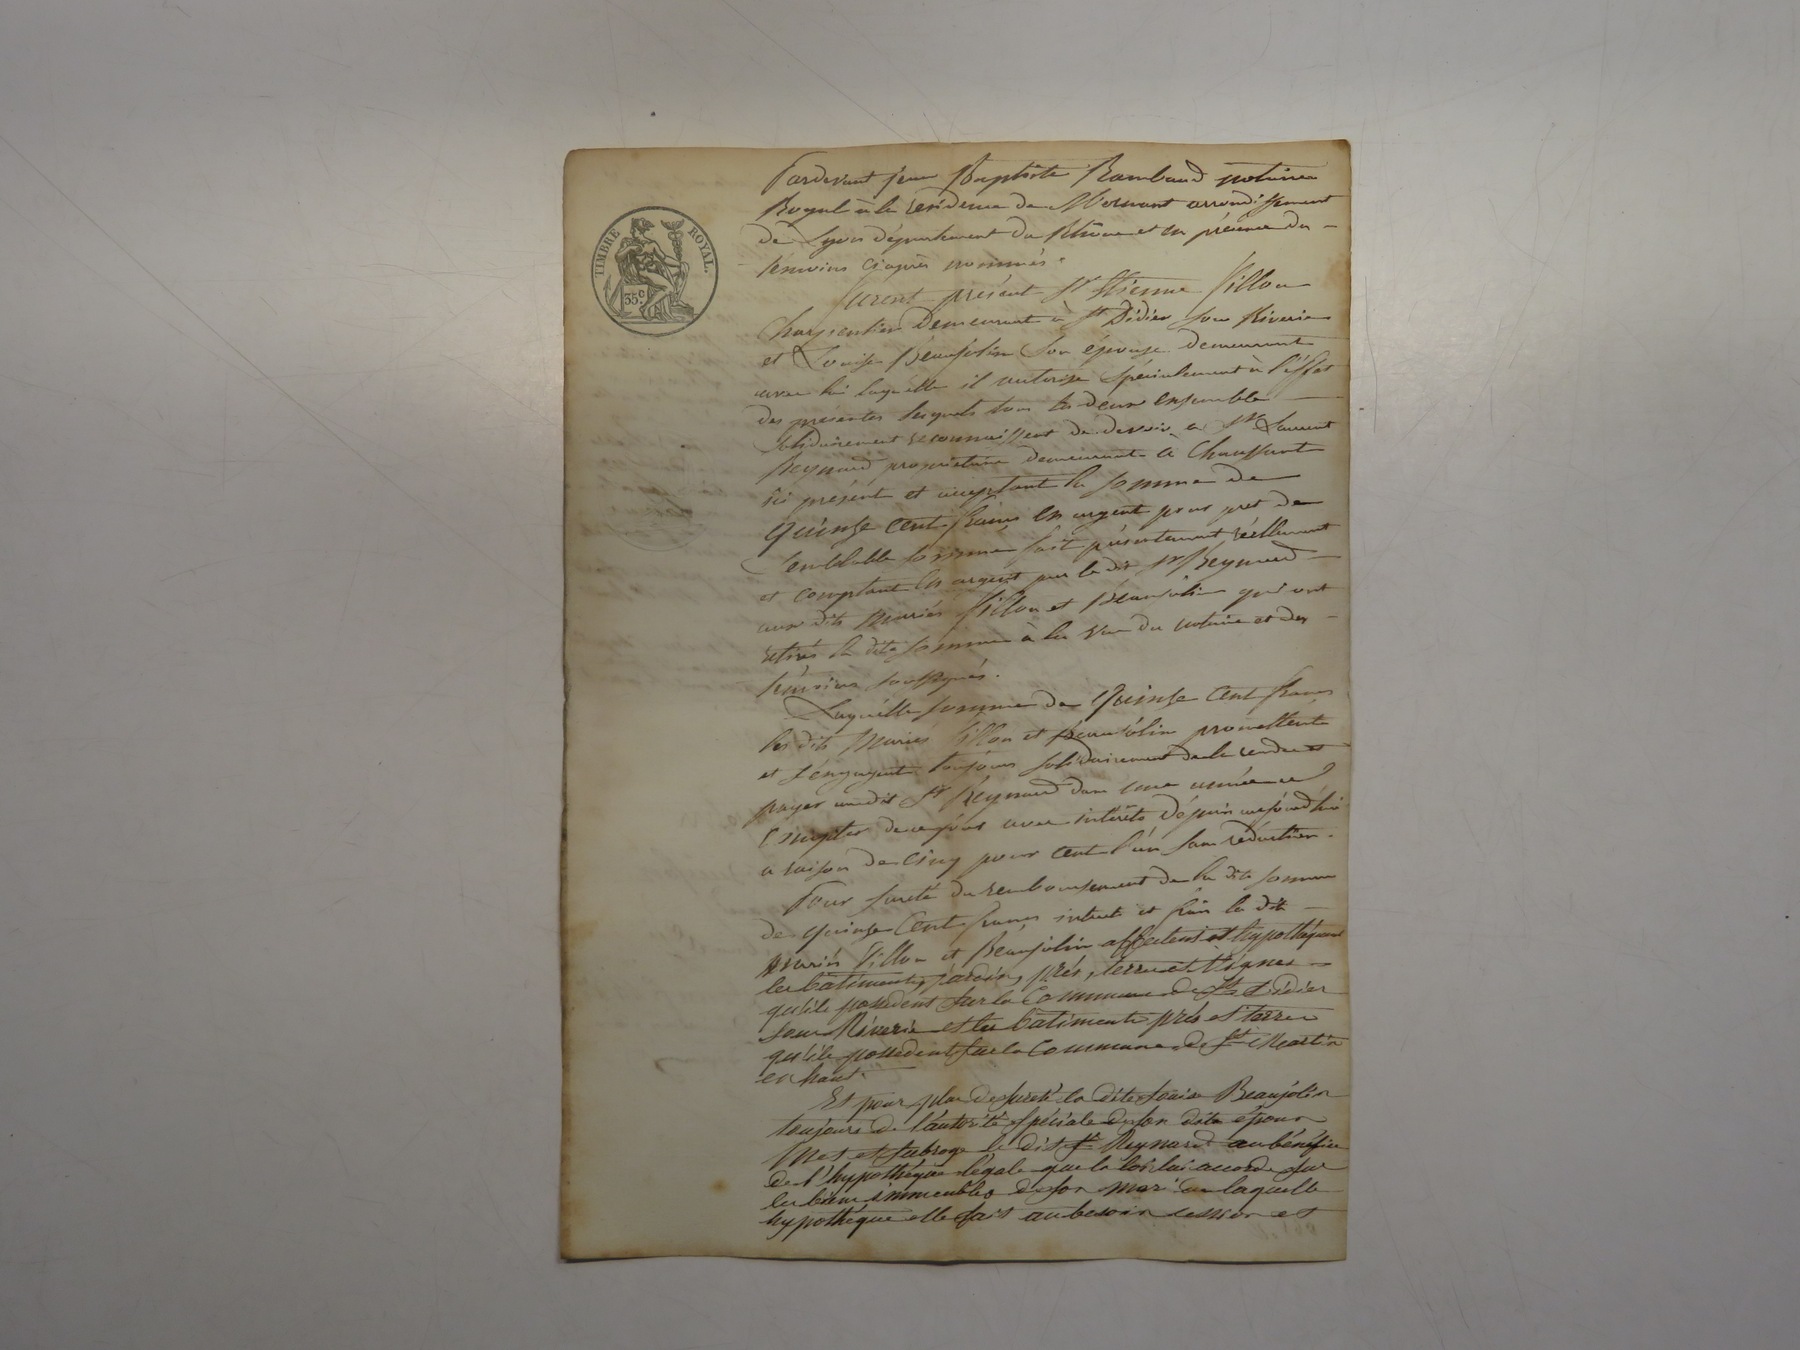 TIMBRE ROYAL.
35c
Pardevant jean Baptiste Rambaud notaire
Royal à la résidence de Mornant arrondissement
de Lyon département du Rhône et en présence des
témoins ci après nommés.
furent présent Sr Etienne Villon
Charpentier demeurant à St Didier sous Riverie
et Louise Beaujolin son épouse demeurant
avec lui laquelle il autorise spécialement à l'effet
des présentes lesquels tous les deux ensemble
solidairement reconnaissent de devoir a Sr Laurent
Reynard propriétaire demeurant a Chaussant
ici présent et acceptant la somme de
quinse cent francs en argent pour pret de
semblable somme fait présentement réellement
et comptant en argent par le dit Sr Reynard
aux dits mariés Villon et Beaujolin qui ont
retiré la dite somme à la vue du notaire et des
témoins soussignés.
Laquelle somme de quinse cent francs
les dits mariés Villon et Beaujolin promettent
et s'engagent toujours solidairement de la rendre et
payer audit Sr Reynard dans une année a
compter de ce jour avec intérêts depuis aujourd'hui
a raison de cinq pour cent l'an sans réduction.
Pour sureté du remboursement de la dite somme
de quinse cent francs intérets et frais les dit
mariés Villon et Beaujolin affectent et hypothèquent
les bâtiments, jardin, prés, terre et vignes
qu'ils possèdent sur la Commune de St Didier
sous Riverie et les bâtiments prés et terres
qu'ils possèdent sur la Commune de St Martin
en haut.
Et pour plus de sureté la dite Louise Beaujolin
toujours de l'autorité spéciale de son dite époux
met et subroge le dit Sr Reynard au bénéfice
de l'hypothèque légale que la loi lui accorde sur
les biens immeubles de son mari de laquelle
hypothèque elle fait au besoin cession et